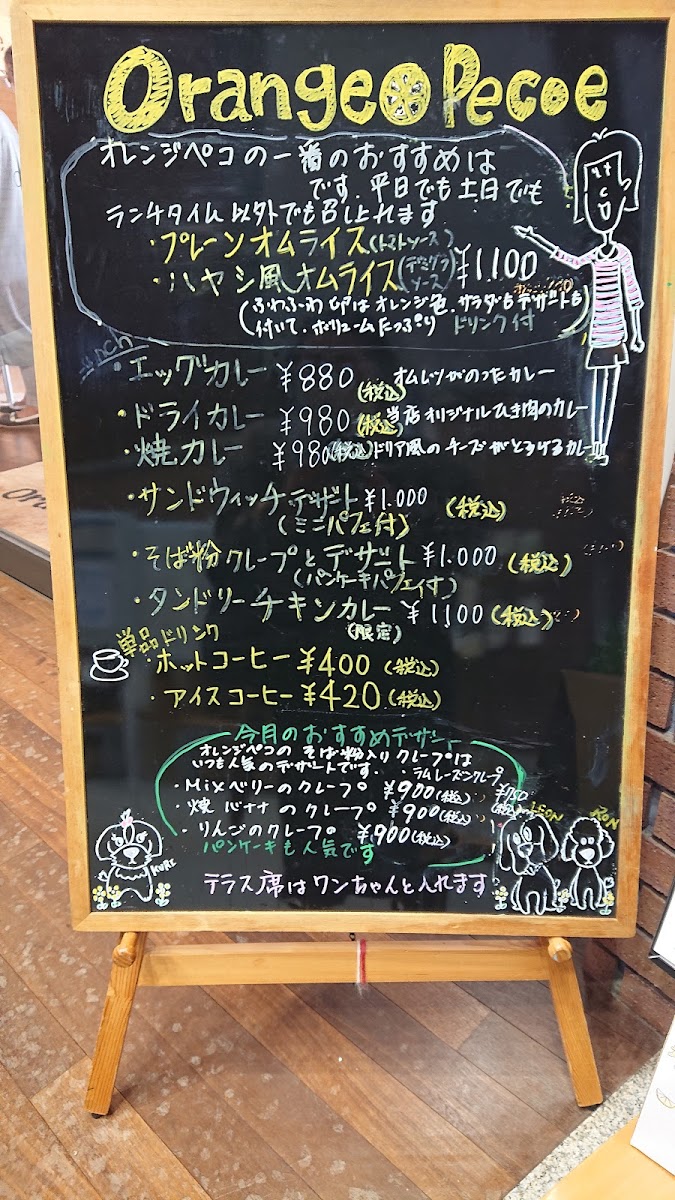 Orange Pecoe
オレンジペコの一番のおすすめは
です.平日でも土日でも
ランチタイム以外でも召し上れます
・プレーンオムライス(トマトソース)
・ハヤシ風オムライス(デミグラソース) ¥1100
(ふわふわ卵はオレンジ色.サラダもデザートも
付いて.ボリュームたっぷり ドリンク付
Lunch
・エッグカレー ¥880(税込) オムレツがのったカレー
・ドライカレー ¥980(税込) 当店オリジナルひき肉のカレー
・焼カレー ¥980(税込) ドリア風のチーズがとろけるカレー
・サンドウィッチデザート ¥1.000 (税込)
(ミニパフェ付)
・そば粉クレープとデザート ¥1.000 (税込)
(パンケーキパフェ付)
・タンドリーチキンカレー ¥1100(税込)
(限定)
単品ドリンク
・ホットコーヒー ¥400 (税込)
・アイスコーヒー ¥420(税込)
今月のおすすめデザート
オレンジペコの そば粉入りクレープは
いつも人気のデザートです. ・ラムレーズンクレープ
・Mixベリーのクレープ ¥900(税込) ¥750
・焼バナナのクレープ ¥900(税込) (税込)
・りんごのクレープ ¥900(税込)
パンケーキも人気です
RON
テラス席はワンちゃんと入れます